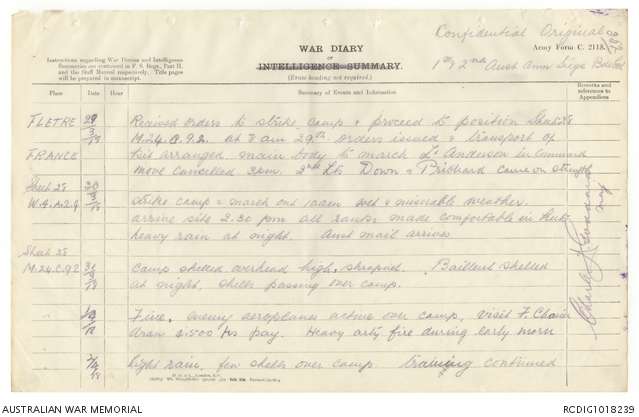 Confidential Original
WAR DIARY
OF
INTELLIGENCE SUMMARY.
(Erase heading not required.)
Army Form C. 2118.
Instructions regarding War Diaries and Intelligence
Summaries are contained in F. S. Regs., Part II.
and the Staff Manual respectively. Title pages
will be prepared in manuscript.
2nd Aust Amn
Place Date Hour Summary of Events and Information Remarks and references to Appendices
FLETRE 29/3/18 Recived orders to strike camp & proceed to position
M.24.C.9.2. at 8 am 29th orders issued & transport of
FRANCE arranged. main body to march Lt Anderson in Command
move cancelled 3pm. 2nd Lts Down & Pritchard came on strength
Sheet 28 30/3/18 Strike camp & march out 10am wet & miserable weather
arrive site 2.30 pm all ranks made comfortable in huts
heavy rain at night. Aust mail arrives
Sheet 28
M.24.C.9.2 31/3/18 Camp shelled overhead high shrapnel. Bailleul shelled
at night, shells passing over camp.
" 1/4/18 Fine, enemy aeroplanes active over camp, visit F.
Draw 2,500 frs pay. Heavy arty fire during early morn
" 2/4/18 light rain, few shells over camp. training continued
AUSTRALIAN WAR MEMORIAL
RCDIG1018239